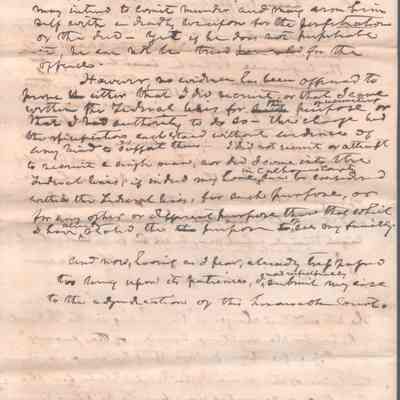 may intend to commit murder and may arm him
self with a deadly weapon for the perpetration
of the deed — Yet if he does not perpetrate
it, he can not be tried for the
offence.
However, no evidence has been offered to
prove either that I did recruit, or that I came
within the Federal lines for the purpose of recruiting or
that I had authority to do so — the charge and
the specifications each stand without evidence of
any kind to support them. I did not recruit or attempt
to recruit a single man, nor did I come into the
Federal lines, if indeed my home in County is to be considered
within the Federal lines, for such purpose, or
for any other or different purpose than that which
I have stated, the purpose to see my family.
And now, having as I fear, already trespassed
too long upon its patience, I respectfully submit my case
to the adjudication of the Honorable Court.